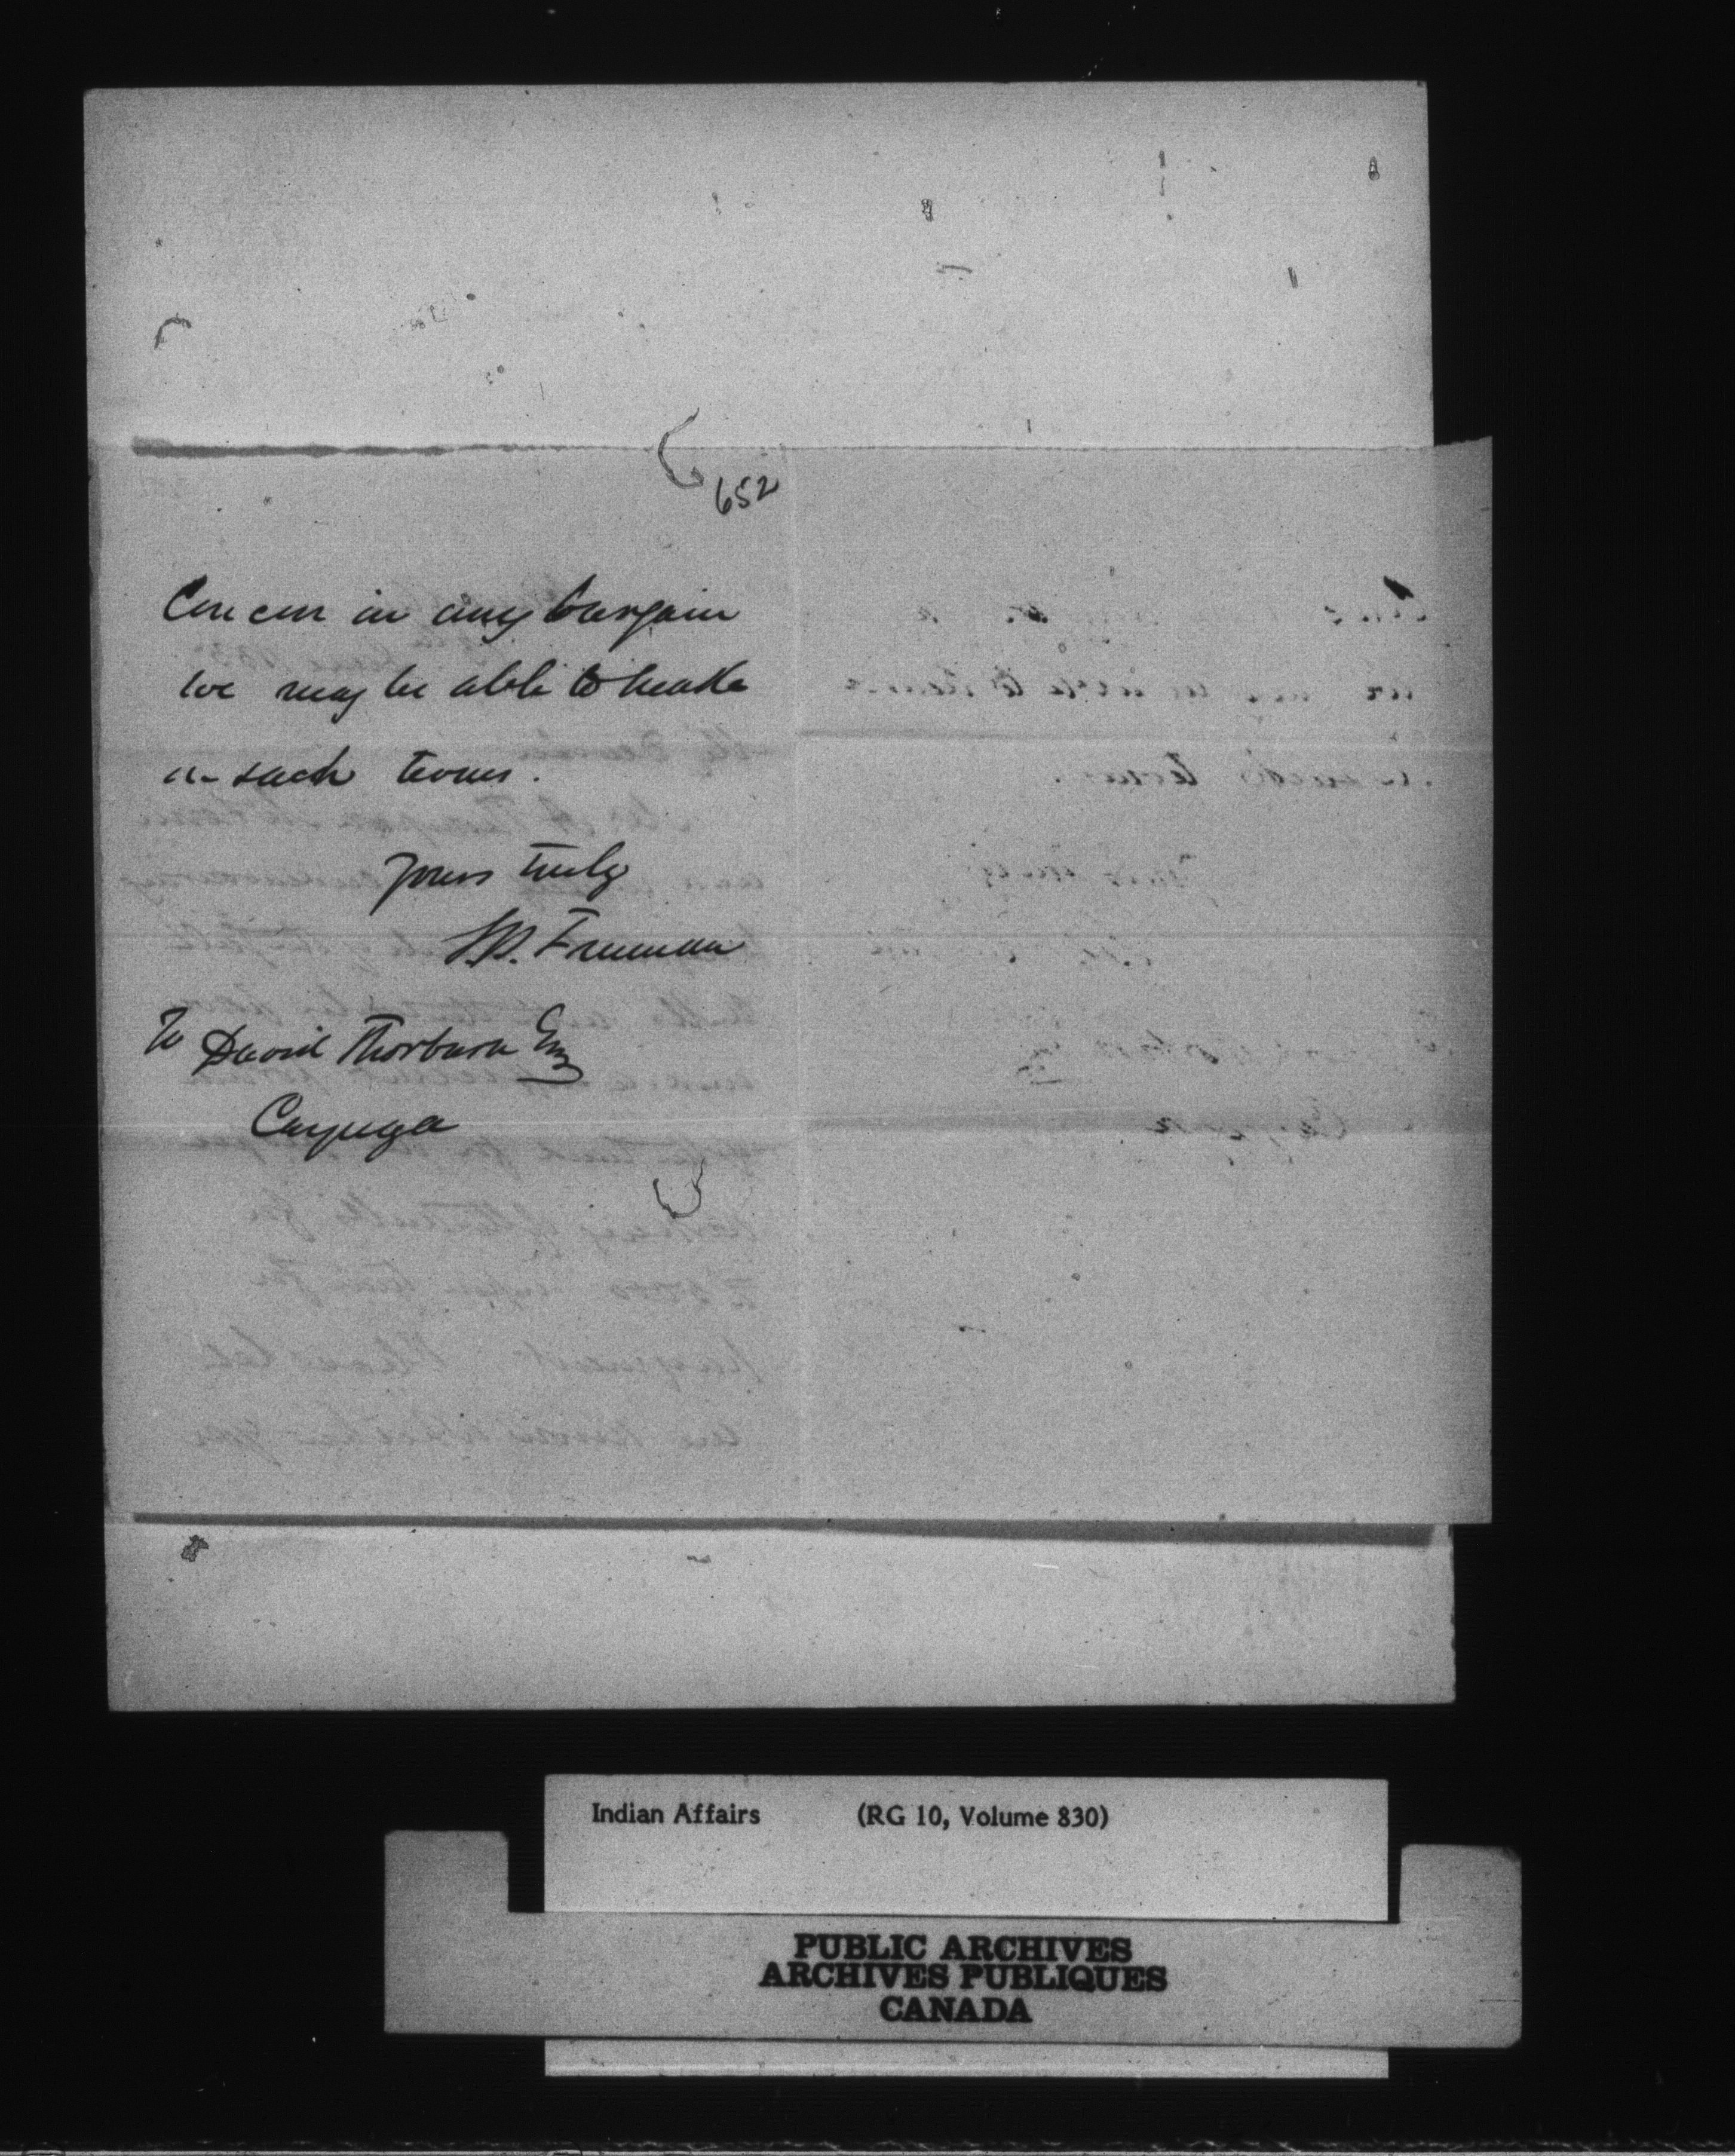 652
Concur in any bargain
we may be able to make
on such terms.
Yours truly
S.B. Freeman
To David Thorburn Esq
Cayuga
Indian Affairs (RG 10, Volume 830)
PUBLIC ARCHIVES
ARCHIVES PUBLIQUES
CANADA